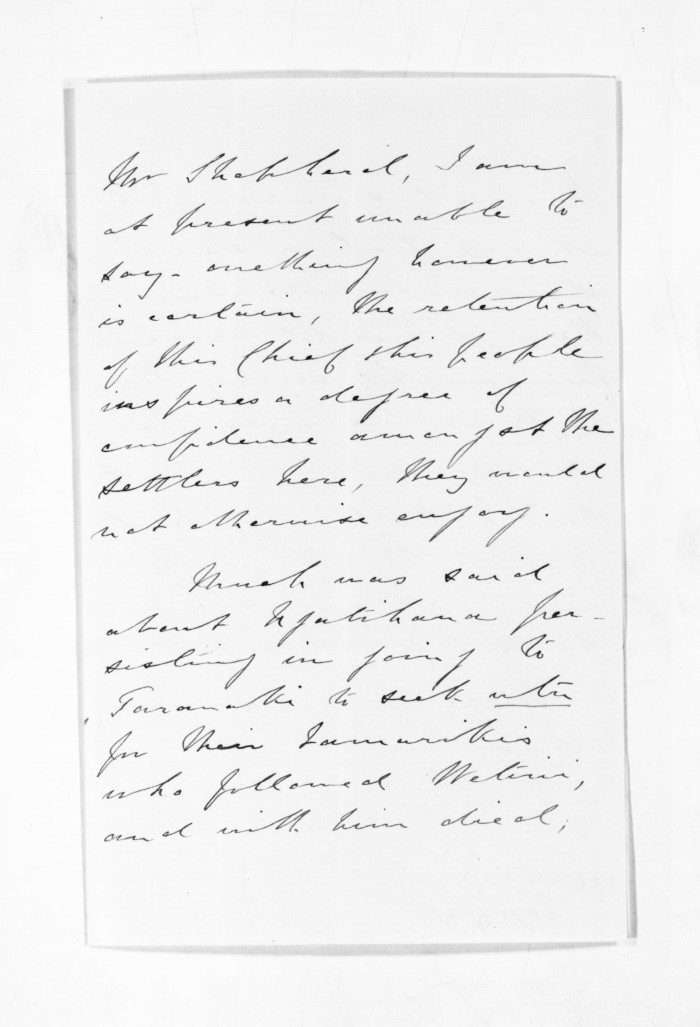 Mr Shepherd, I am
at present unable to
say - one thing however
is certain, the retention
of this Chief & his people
inspires a degree of
confidence amongst the
settlers here, they would
not otherwise enjoy.
Much was said
about Ngatihaua per-
sisting in going to
Taranaki to seek utu
for their Tamarikis
who followed Wetini,
and with him died;